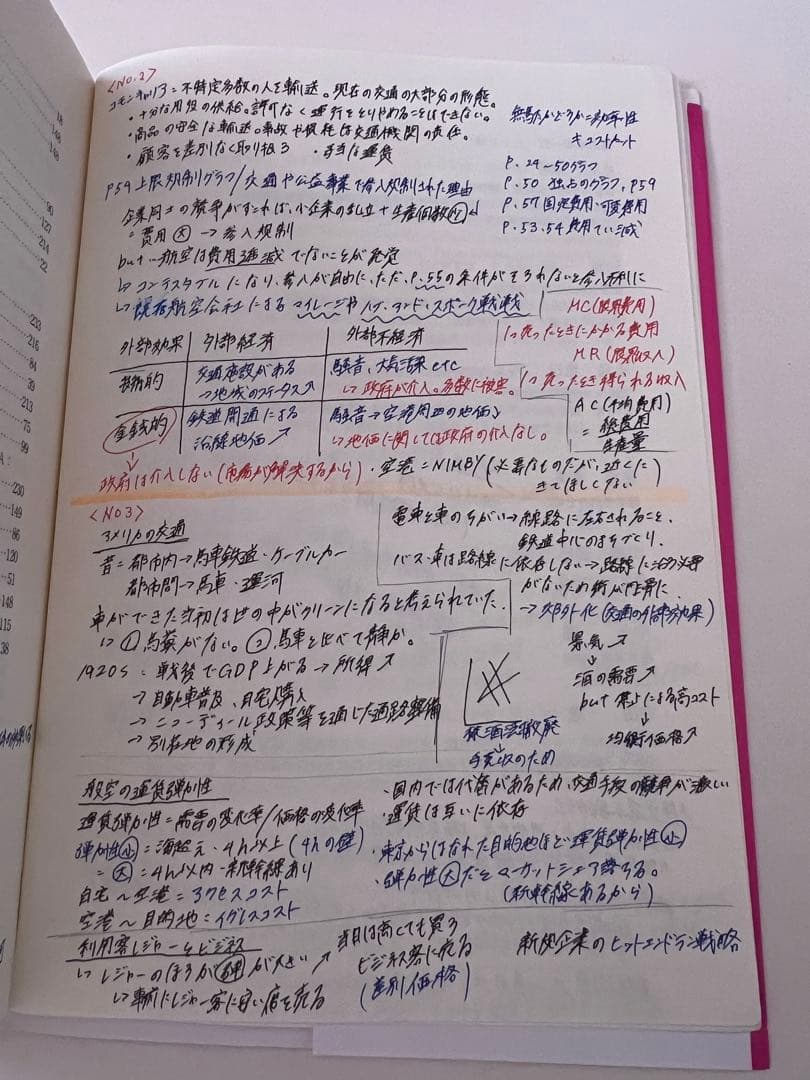 <No.2>
コモンキャリア=不特定多数の人を輸送。現在の交通の大部分の形態。
・十分な用役の供給。許可なく運行をとりやめることはできない。
・商品の安全な輸送。事故や損耗は交通機関の責任。
・顧客を差別なく取り扱う ・妥当な運賃
無駄かどうか=効率性
P.24〜50グラフ
P.50 独占のグラフ, P59
P.57 固定費用・可変費用
P.53.54 費用てい減
P59上限規制グラフ/交通や公益事業で参入規制された理由
企業同士の競争がすすめば、小企業の乱立+生産個数少
=費用大→参入規制
but…航空は費用逓減でないことが発覚
↳コンテスタブルになり、参入が自由に、ただ、P.55の条件がそろわないと参入不利に
↳既存航空会社によるマイレージやハブ・アンド・スポーク戦略
MC(限界費用)
1つ売ったときにかかる費用
MR(限界収入)
1つ売ったとき得られる収入
AC(平均費用)
=総費用
生産量
外部効果 外部経済 外部不経済
技術的 交通施設がある→地域のステータス↗ 騒音、大気汚染etc
↳政府が介入。多数に被害。
金銭的 鉄道開通による沿線地価↗ 騒音→空港周辺の地価↓
↳地価に関しては政府の介入なし。
↓
政府は介入しない(市場が解決するから)
・空港=NIMBY(必要なものだが、近くにきてほしくない)
<NO3>
アメリカの交通
昔=都市内→馬車鉄道・ケーブルカー
都市間→馬車・運河
電車と車のちがい→線路に左右されること、
鉄道中心のまちづくり。
バス・車は路線に依存しない→路線に沿う必要
がないため街が円骨に
→郊外化(交通の外部効果)
車ができた当初は世の中がクリーンになると考えられていた。
↳①馬糞がない。②馬車と比べて静か。
1920s=戦後でGDP上がる→所得↗
→自動車普及、自宅購入
→ニューディール政策等を通じた道路整備
→別在地の形成
禁酒法撤廃
↓
予見収のため
景気↗
↓
酒の需要↗
but 禁止による高コスト
↓
均衡価格↗
航空の運賃弾力性
運賃弾力性=需要の変化率/価格の変化率
弾力性小=海越え・4h以上(4hの壁)
=大=4h以内…新幹線あり
自宅〜空港=アクセスコスト
空港〜目的地=イグレスコスト
・国内では代替があるため、交通手段の競争が激しい
・運賃は互いに依存
・東京からはなれた目的地ほど運賃弾力性小
・弾力性大だとマーケットシェア落ちる。
(新幹線あるから)
利用客レジャーとビジネス
↳レジャーのほうが弾が大きい
↳事前にレジャー客に安い席を売る
↗当日は高くても買う
ビジネス客に売る
(差別価格)
新規企業のヒットエンドラン戦略